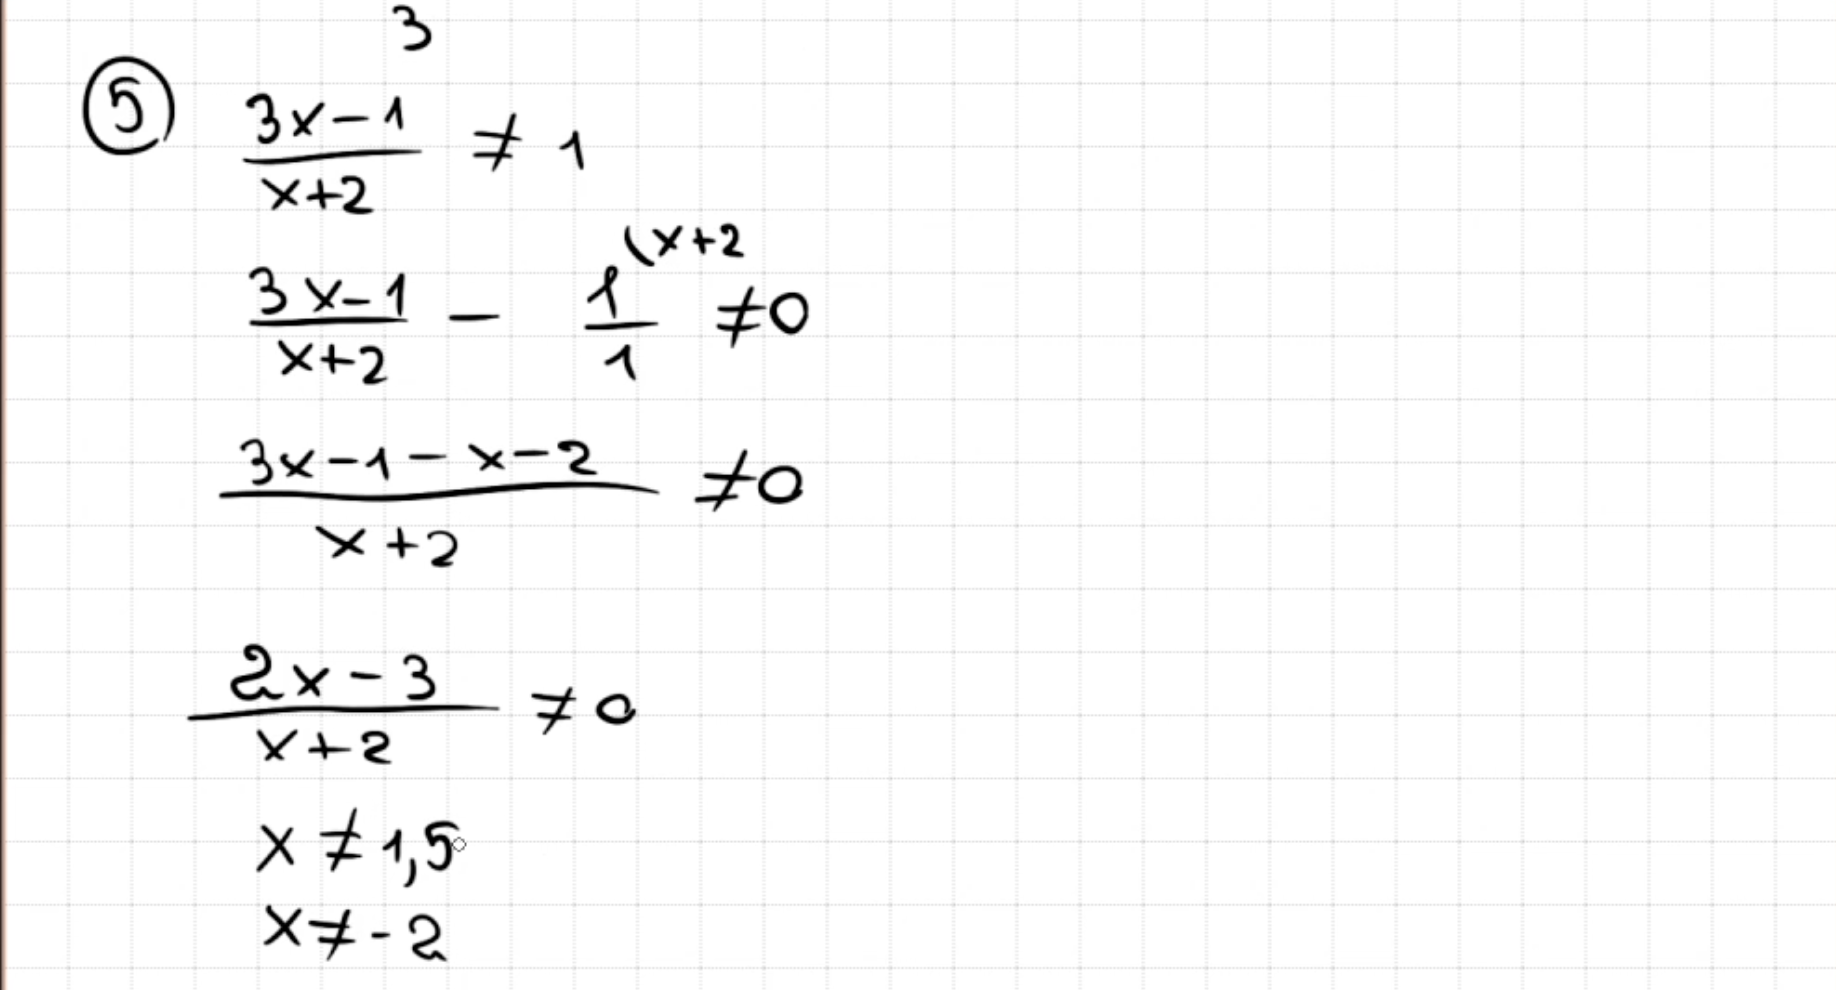 3
⑤ (3x-1)/(x+2) ≠ 1
(3x-1)/(x+2) - 1/1 (x+2 ≠0
(3x-1-x-2)/(x+2) ≠0
(2x-3)/(x+2) ≠0
x ≠ 1,5
x≠-2